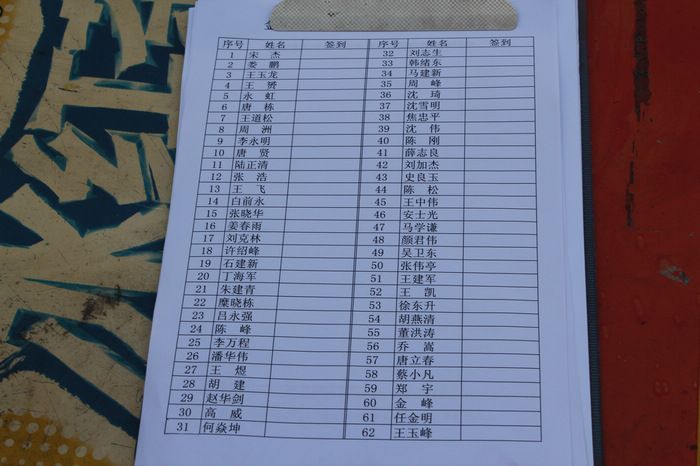 序号 姓名 签到 序号 姓名 签到
1 宋 杰 32 刘志生
2 娄 鹏 33 韩绪东
3 王玉龙 34 马建新
4 王 赟 35 周 峰
5 永 虹 36 沈 琦
6 唐 栋 37 沈雪明
7 王道松 38 焦忠平
8 周 洲 39 沈 伟
9 李永明 40 陈 刚
10 唐 贤 41 薛志良
11 陆正清 42 刘加杰
12 张 浩 43 史良玉
13 王 飞 44 陈 松
14 白前永 45 王中伟
15 张晓华 46 安士光
16 姜春雨 47 马学谦
17 刘克林 48 颜君伟
18 许绍峰 49 吴卫东
19 石建新 50 张伟亭
20 丁海军 51 王建军
21 朱建青 52 王 凯
22 糜晓栋 53 徐东升
23 吕永强 54 胡燕清
24 陈 峰 55 董洪涛
25 李万程 56 乔 嵩
26 潘华伟 57 唐立春
27 王 煜 58 蔡小凡
28 胡 建 59 郑 宇
29 赵华剑 60 金 峰
30 高 威 61 任金明
31 何焱坤 62 王玉峰